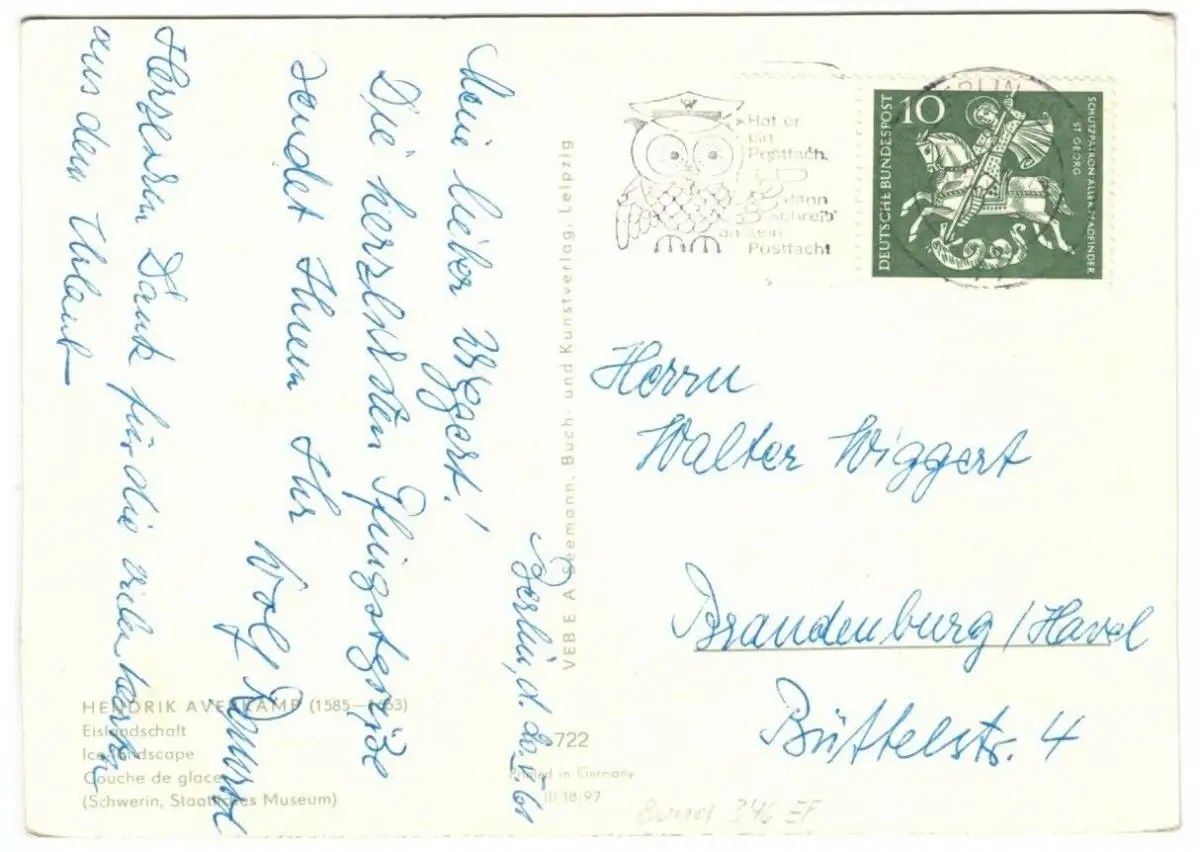 Berlin, d. 20. V. 61
Mein lieber Wiggert!
Die herzlichsten Pfingstgrüße
sendet Ihnen Ihr
Wolf
Herzlichen Dank für die vielen Karten
aus dem Urlaub
Hat er
ein
Postfach,
dann
schreib'
an sein
Postfach!
BERLIN
10
DEUTSCHE BUNDESPOST
SCHUTZPATRON ALLER PFADFINDER
ST. GEORG
Herrn
Walter Wiggert
Brandenburg/Havel
Büttelstr. 4
VEB E. A. Seemann, Buch- und Kunstverlag, Leipzig
HENDRIK AVERKAMP (1585—1663)
Eislandschaft
Ice-landscape
Couche de glace
(Schwerin, Staatliches Museum)
722
Printed in Germany
III 18 97
Bund 346 EF